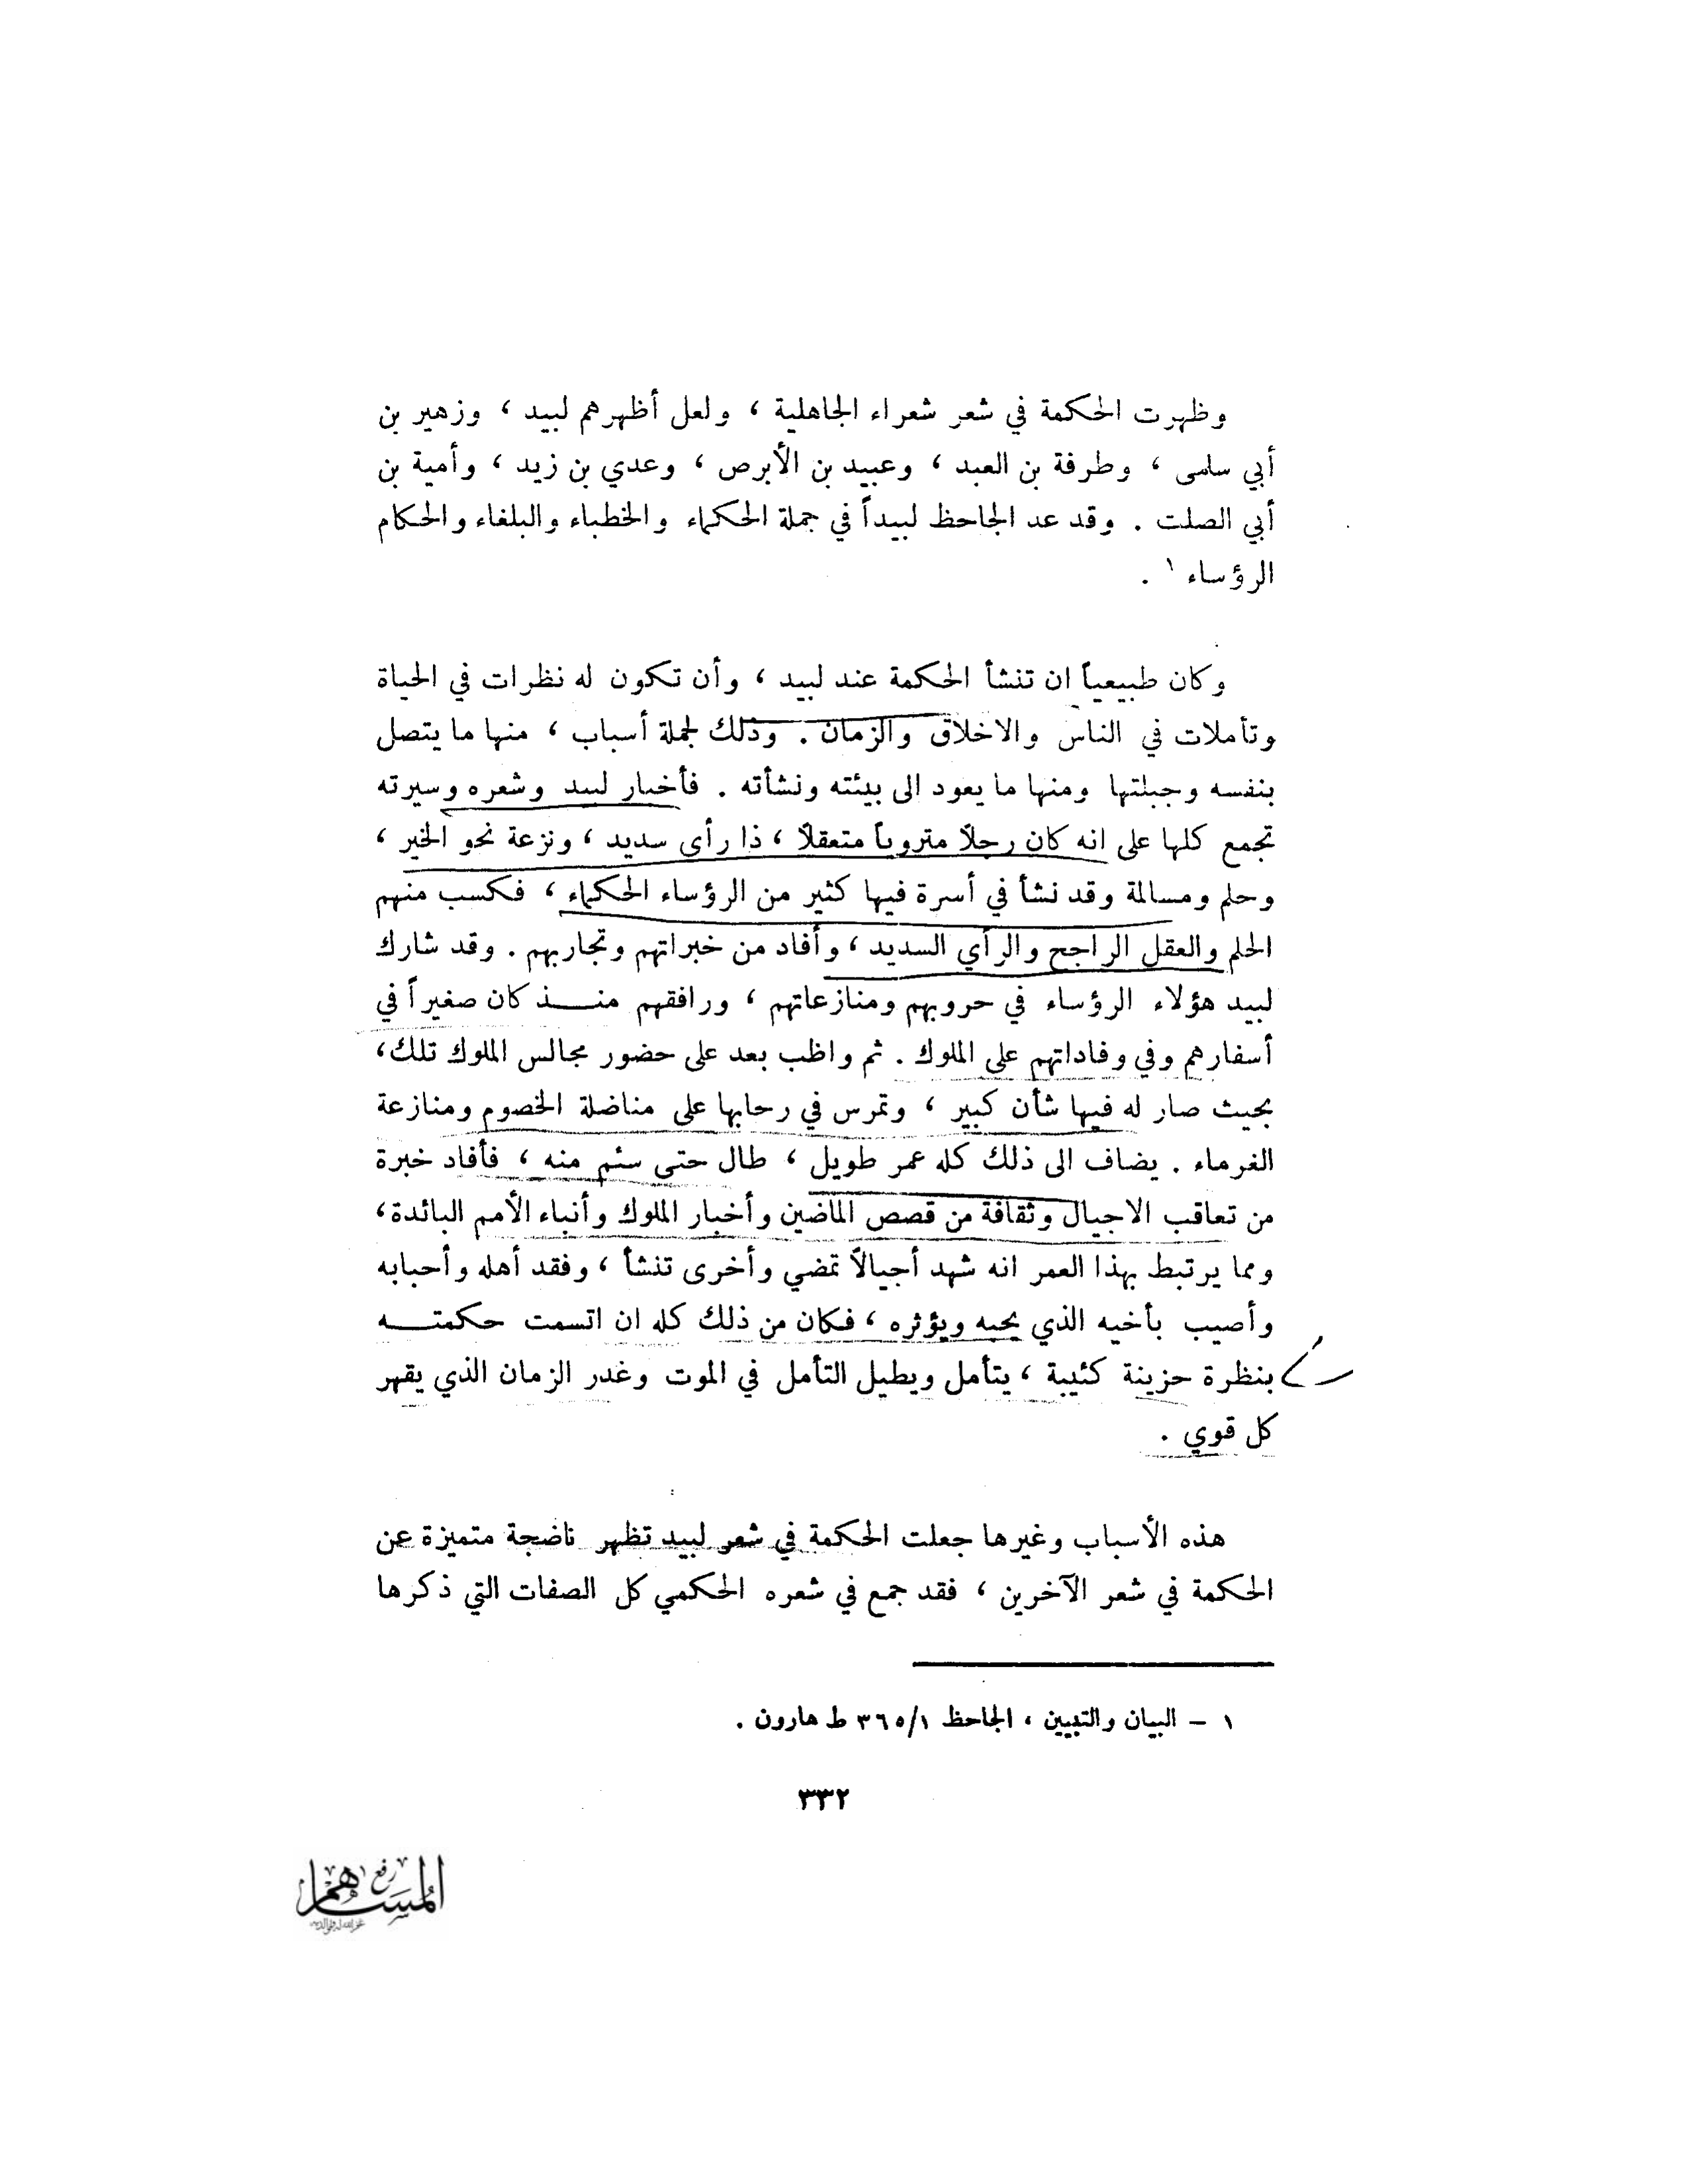 وظهرت الحكمة في شعر شعراء الجاهلية ، ولعل أظهرهم لبيد ، وزهير بن
أبي سلمى ، وطرفة بن العبد ، وعبيد بن الأبرص ، وعدي بن زيد ، وأمية بن
أبي الصلت . وقد عد الجاحظ لبيداً في جملة الحكماء والخطباء والبلغاء والحكام
الرؤساء ١ .
وكان طبيعياً ان تنشأ الحكمة عند لبيد ، وأن تكون له نظرات في الحياة
وتأملات في الناس والاخلاق والزمان . وذلك لجملة أسباب ، منها ما يتصل
بنفسه وجبلتها ومنها ما يعود الى بيئته ونشأته . فأخبار لبيد وشعره وسيرته
تجمع كلها على انه كان رجلاً متروياً متعقلاً ، ذا رأي سديد ، ونزعة نحو الخير ،
وحلم ومسالمة وقد نشأ في أسرة فيها كثير من الرؤساء الحكماء ، فكسب منهم
الحلم والعقل الراجح والرأي السديد ، وأفاد من خبراتهم وتجاربهم . وقد شارك
لبيد هؤلاء الرؤساء في حروبهم ومنازعاتهم ، ورافقهم منــذ كان صغيراً في
أسفارهم وفي وفاداتهم على الملوك . ثم واظب بعد على حضور مجالس الملوك تلك،
بحيث صار له فيها شأن كبير ، وتمرس في رحابها على مناضلة الخصوم ومنازعة
الغرماء . يضاف الى ذلك كله عمر طويل ، طال حتى سئم منه ، فأفاد خبرة
من تعاقب الاجيال وثقافة من قصص الماضين وأخبار الملوك وأنباء الأمم البائدة،
ومما يرتبط بهذا العمر انه شهد أجيالاً تمضي وأخرى تنشأ ، وفقد أهله وأحبابه
وأصيب بأخيه الذي يحبه ويؤثره ، فكان من ذلك كله ان اتسمت حكمتــه
بنظرة حزينة كئيبة ، يتأمل ويطيل التأمل في الموت وغدر الزمان الذي يقهر
كل قوي .
هذه الأسباب وغيرها جعلت الحكمة في شعر لبيد تظهر ناضجة متميزة عن
الحكمة في شعر الآخرين ، فقد جمع في شعره الحكمي كل الصفات التي ذكرها
١ – البيان والتبيين ، الجاحظ ٣٦٥/١ ط هارون .
٣٣٢
رفع
المساهم